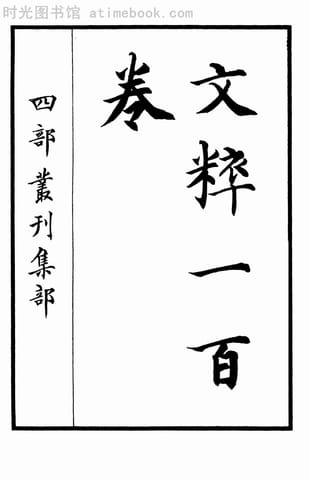 时光图书馆 - atimebook.com
文粹一百
卷
四部叢刊集部